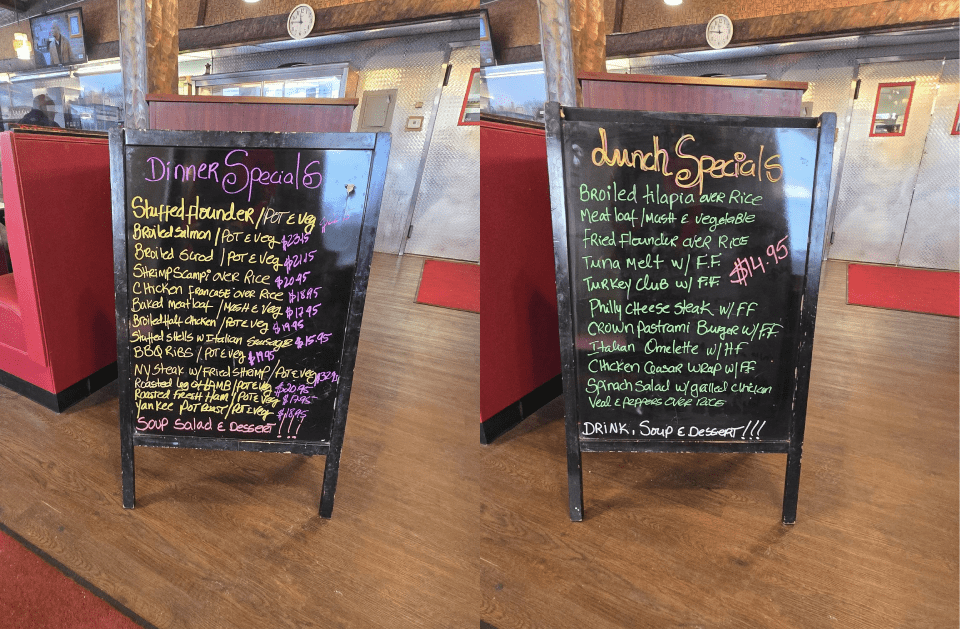 Dinner Specials
Stuffed flounder / POT E Veg
Broiled Salmon / POT E Veg $23.95
Broiled Scrod / POT E Veg $21.25
Shrimp Scampi over Rice $20.95
Chicken Francase over Rice $18.95
Baked meatloaf / Mash E Veg $17.95
Broiled Half Chicken / POT E Veg $19.95
Stuffed Shells w Italian Sausage $15.95
BBQ Ribs / POT E Veg $19.95
NY Steak w/ Fried Shrimp / POT E Veg
Roasted leg of LAMB / POT E Veg $20.95
Roasted Fresh Ham / POT E Veg $17.95
Yankee Pot Roast / POT E Veg $18.95
Soup Salad E Dessert !!!
Lunch Specials
Broiled tilapia over Rice
Meatloaf / Mash E vegetable
Fried Flounder over Rice
Tuna Melt w/ F.F.
$14.95
Turkey Club w/ F.F.
Philly Cheese Steak w/ FF
Crown Pastrami Burger w/ F.F.
Italian Omelette w/ HF
Chicken Ceasar Wrap w/ FF
Spinach Salad w/ grilled chicken
Veal E peppers over Rice
DRINK, Soup E Dessert !!!